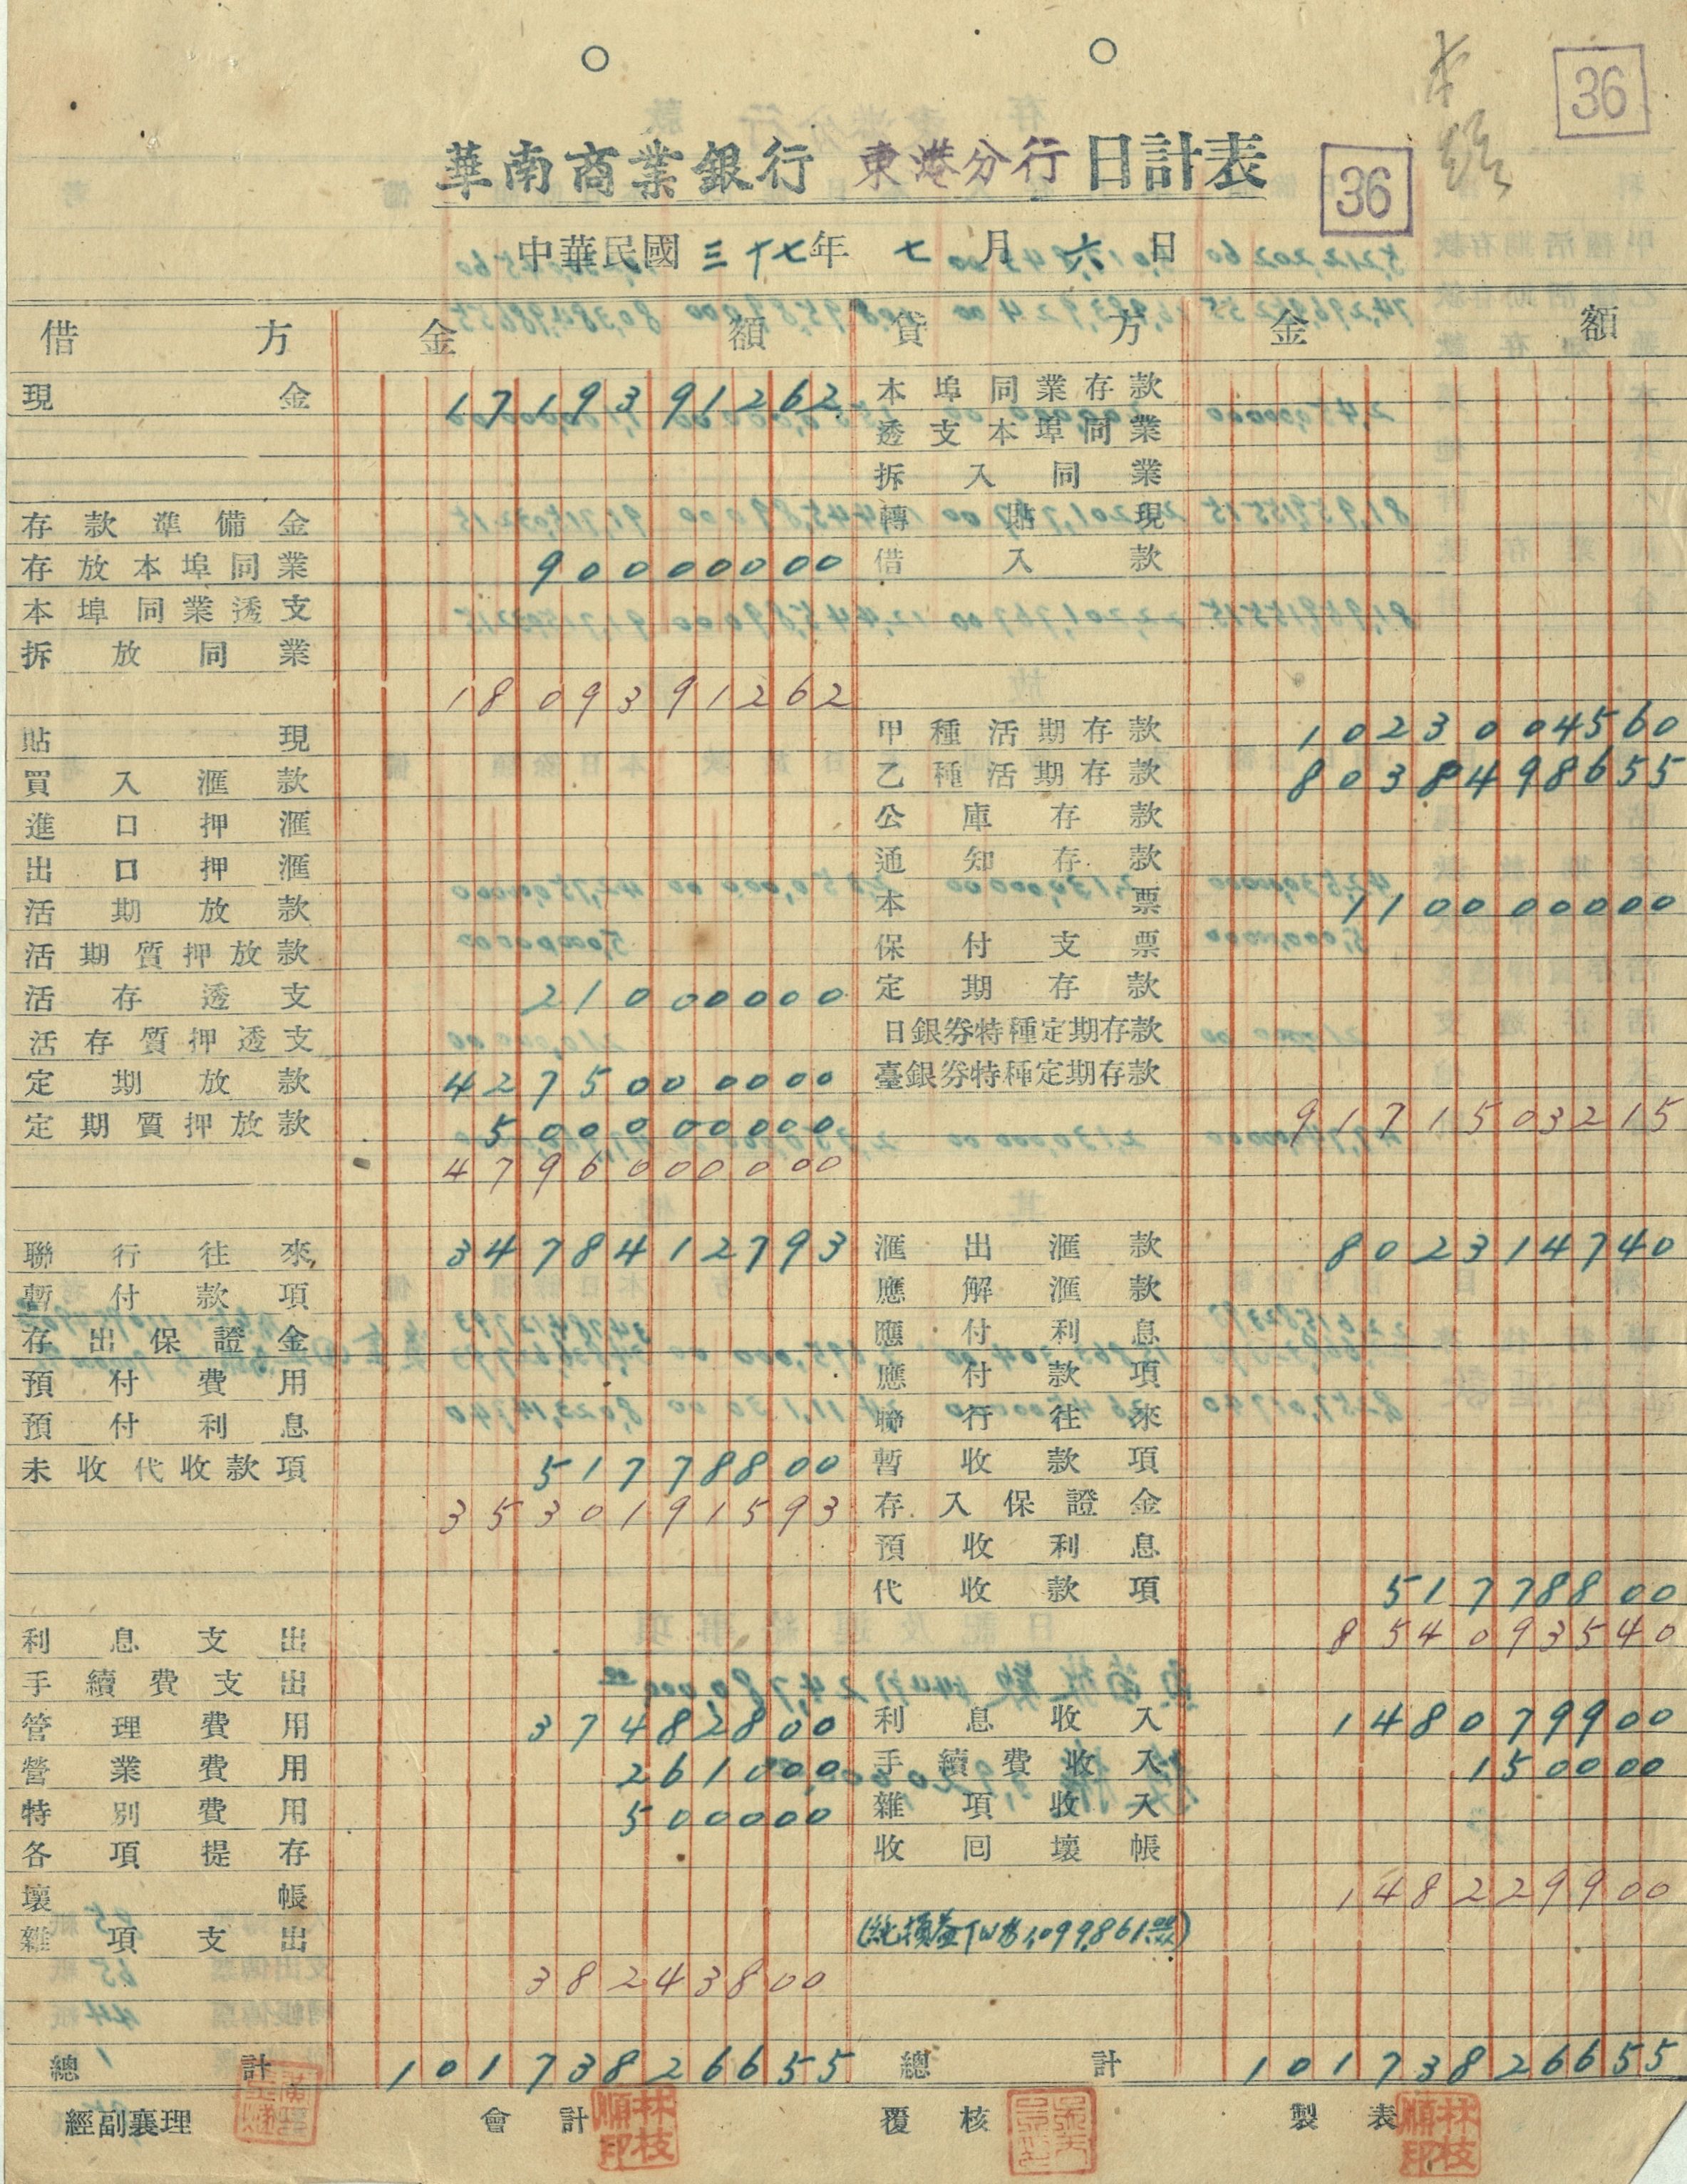 本
36
36
華南商業銀行 東港分行 日計表
中華民國三十七年 七月 六日
借方 金額 貸方 金額
現金 1719391262 本埠同業存款
透支本埠同業
拆入同業
存款準備金 轉貼現
存放本埠同業 90000000 借入款
本埠同業透支
拆放同業
1809391262
貼現 甲種活期存款 1023004560
買入滙款 乙種活期存款 8038498655
進口押滙 公庫存款
出口押滙 通知存款
活期放款 本票 110000000
活期質押放款 保付支票
活存透支 21000000 定期存款
活存質押透支 日銀券特種定期存款
定期放款 4275000000 臺銀券特種定期存款
定期質押放款 500000000 9171503215
4796000000
聯行往來 3478412793 滙出滙款 802314740
暫付款項 應解滙款
存出保證金 應付利息
預付費用 應付款項
預付利息 聯行往來
未收代收款項 51778800 暫收款項
3530191593 存入保證金
預收利息
代收款項 51778800
利息支出 854093540
手續費支出
管理費用 37482800 利息收入 148079900
營業費用 261000 手續費收入 150000
特別費用 500000 雜項收入
各項提存 收回壞帳
壞帳 148229900
雜項支出 (純損益 1,099,861.00)
38243800
總計 10173826655 總計 10173826655
經副襄理 會計 林枝順印 覆核 製表 林枝順印